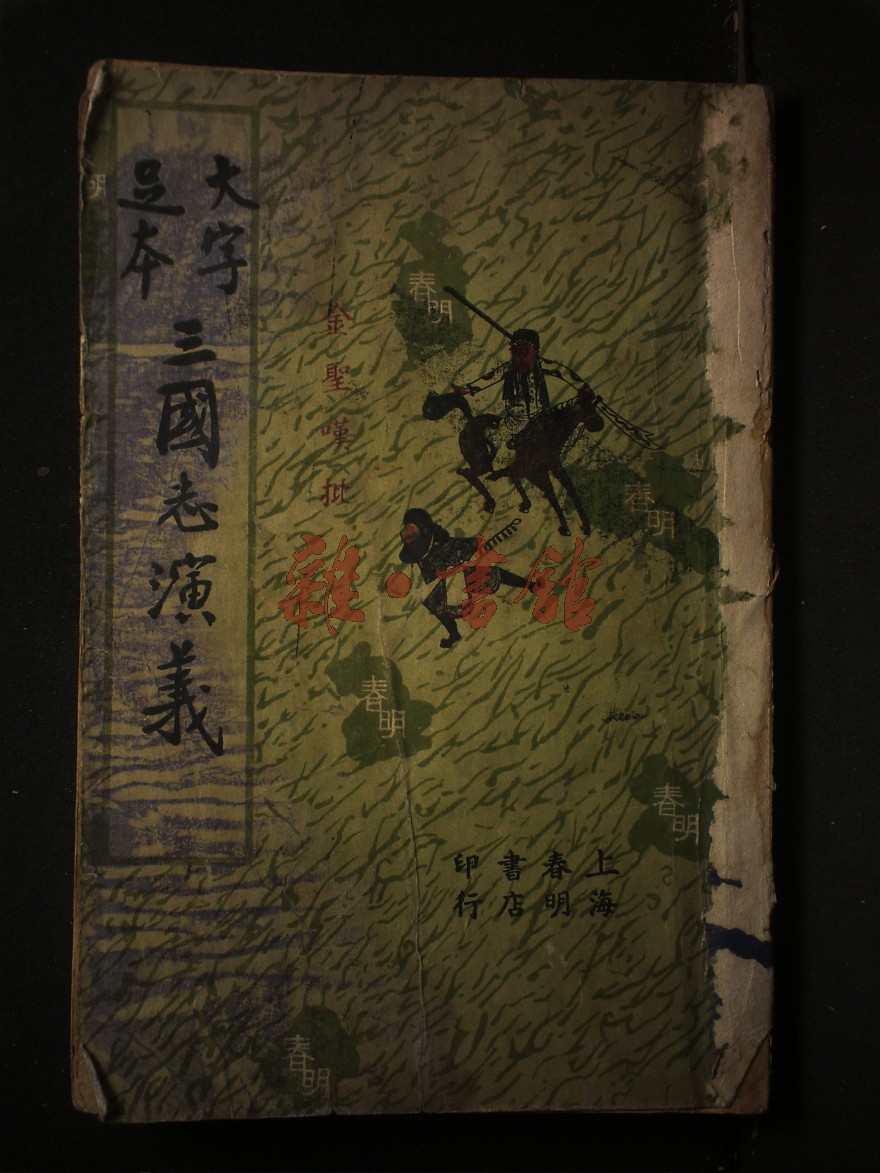 大字
足本
三國志演義
金聖嘆批
春明
春明
春明
春明
春明
明
上海
春明
書店
印行
雜·書館